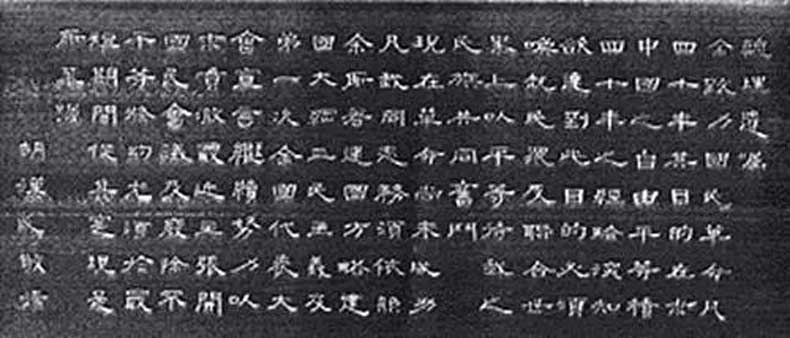 總理遺囑
余致力國民革命凡
四十年其目的在求
中國之自由平等積
四十年之經驗深知
欲達到此目的必須
喚起民眾及聯合世
界上以平等待我之
民族共同奮鬥
現在革命尚未成功
凡我同志務須依照
余所著建國方略建
國大綱三民主義及
第一次全國代表大
會宣言繼續努力以
求貫徹最近主張開
國民會議及廢除不
平等條約尤須於最
短期間促其實現是
所至囑
胡漢民敬書